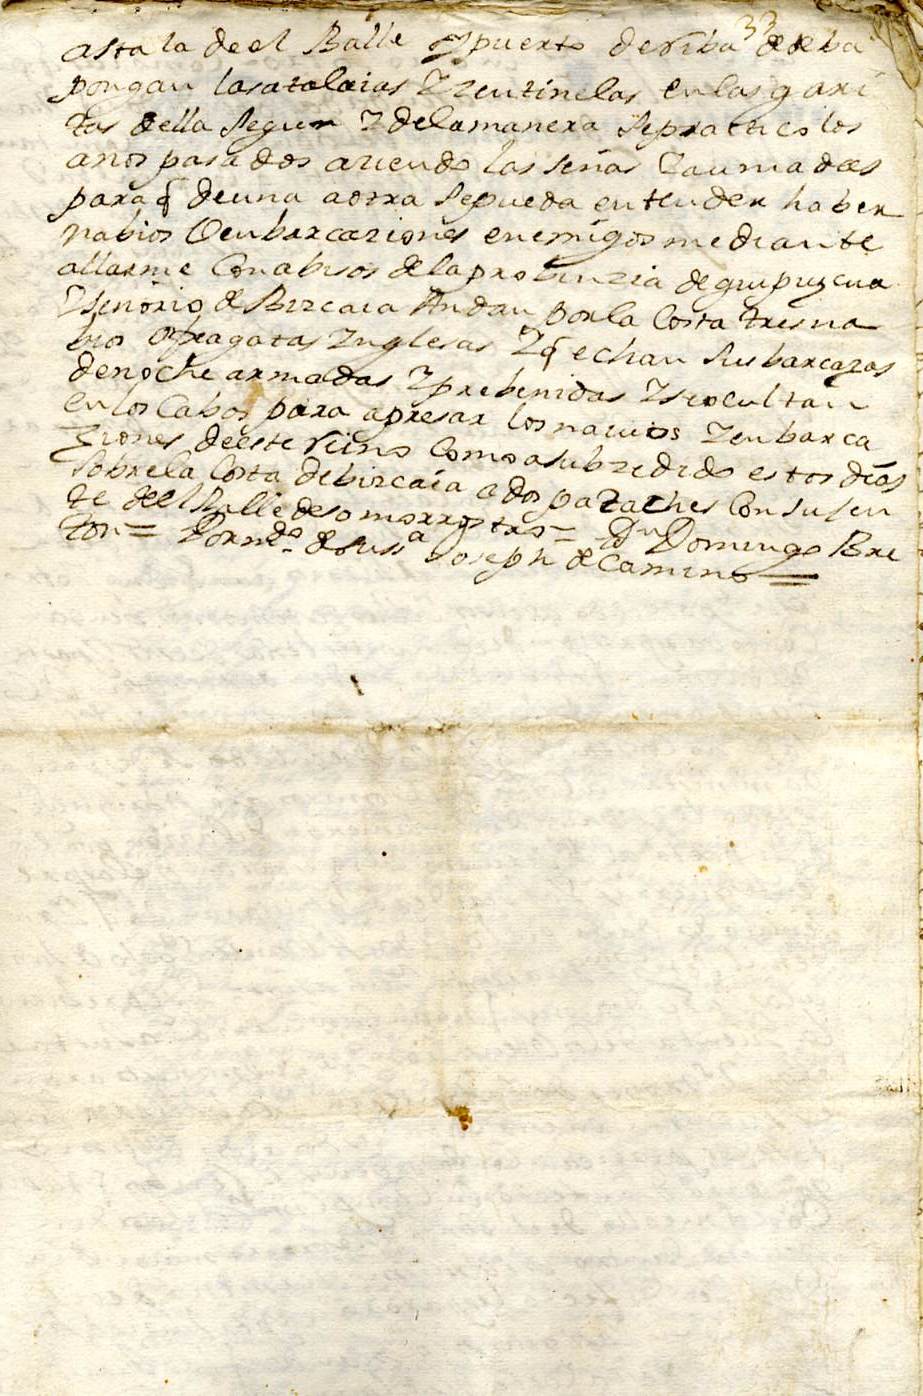 33
asta la de el Balle y puerto de riba de deba
pongan las atalaias y zentinelas en las gari
tas della segun y de la manera se pratico los
años pasados aziendo las señas y aumadas
para q de una aotra se pueda entender haber
nabios O enbarcaziones enemigos mediante
allarme Con abisos de la probinzia de guipuzcua
y señorio de Bizcaia Andan por la Costa tres na
bios O fragatas ynglesas y q echan sus barcazas
de noche armadas y prebenidas y se ocultan
en los Cabos para apresar los nauios y enbarca
ziones de este reino Como a subzedido estos dias
sobre la Costa de bizcaia a dos pataches Con su jen
te del Balle de somorrostro = Dn Domingo Bre
ton = Por mdo de su ssa Joseph de Camino =